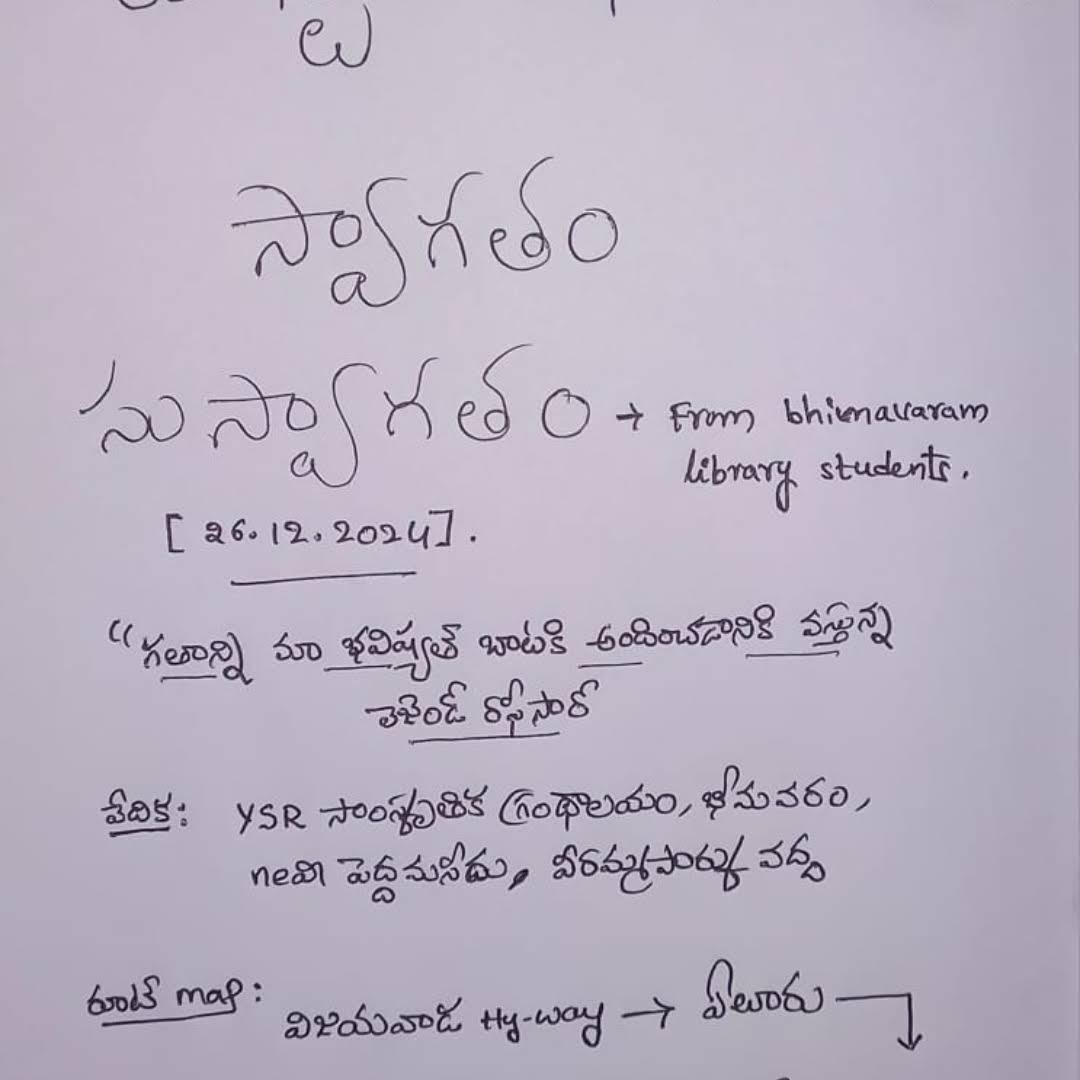 లు
స్వాగతం
సుస్వాగతం → From bhimavaram
library students.
[ 26.12.2024].
“గతాన్ని మా భవిష్యత్ బాటకి అందించడానికి వస్తున్న
లెజెండ్ రోఫ్ సార్
వేదిక: YSR సాంస్కృతిక గ్రంథాలయం, భీమవరం,
పెద్దమసీదు, వీరమ్మపార్కు వద్ద
రూట్ map: విజయవాడ Hy-way → ఏలూరు